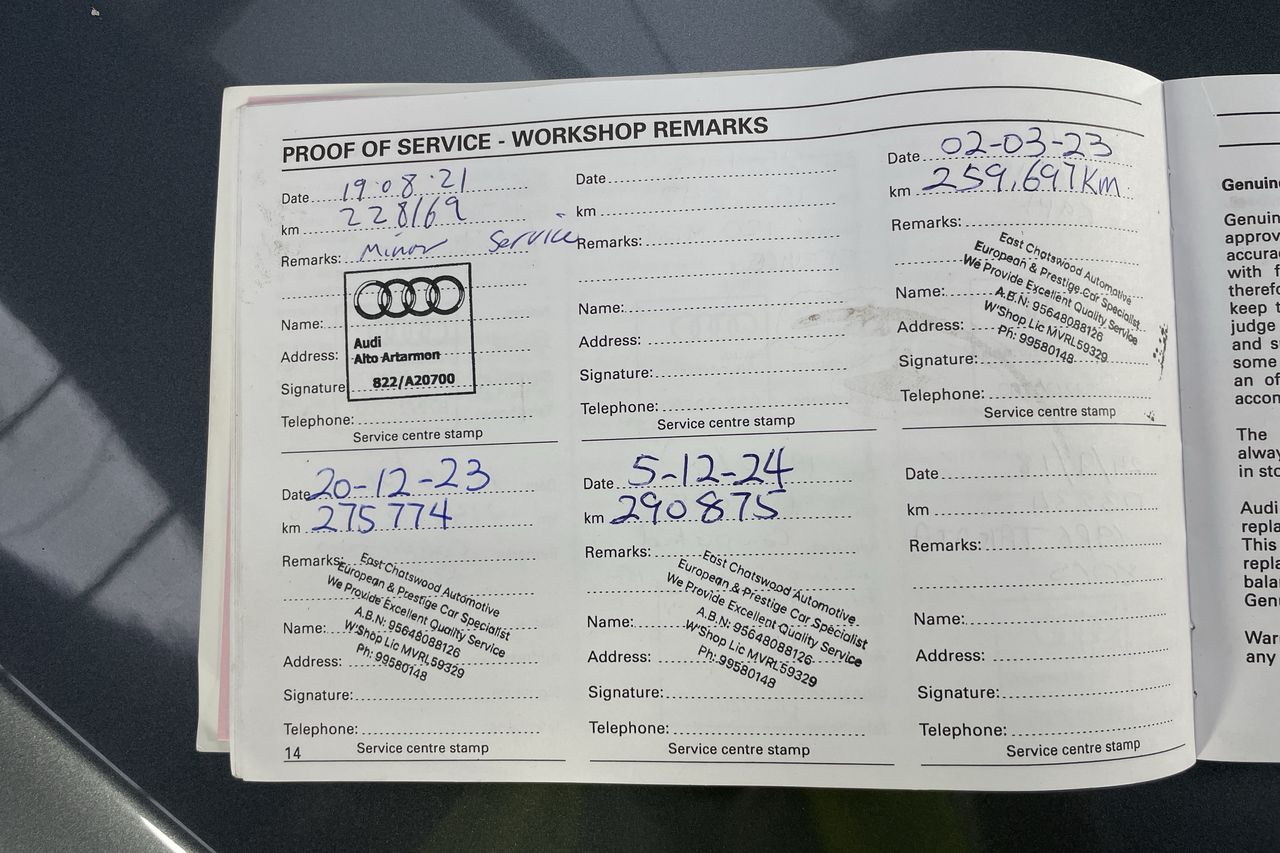 PROOF OF SERVICE - WORKSHOP REMARKS
Date 19.08.21
km 228169
Remarks: Minor Service
Name:
Audi
Address: Alto Artarmon
Signature 822/A20700
Telephone:
Service centre stamp
Date
km
Remarks:
Name:
Address:
Signature:
Telephone:
Service centre stamp
Date 02-03-23
km 259,697Km
Remarks:
East Chatswood Automotive
European & Prestige Car Specialist
We Provide Excellent Quality Service
A.B.N: 95648088126
W'Shop Lic MVRL59329
Ph: 99580148
Name:
Address:
Signature:
Telephone:
Service centre stamp
Date 20-12-23
km 275774
Remarks:
East Chatswood Automotive
European & Prestige Car Specialist
We Provide Excellent Quality Service
A.B.N: 95648088126
W'Shop Lic MVRL59329
Ph: 99580148
Name:
Address:
Signature:
Telephone:
Service centre stamp
14
Date 5-12-24
km 290875
Remarks:
East Chatswood Automotive
European & Prestige Car Specialist
We Provide Excellent Quality Service
A.B.N: 95648088126
W'Shop Lic MVRL59329
Ph: 99580148
Name:
Address:
Signature:
Telephone:
Service centre stamp
Date
km
Remarks:
Name:
Address:
Signature:
Telephone:
Service centre stamp
Genuin
approv
accura
with f
therefo
keep
judge
and s
some
an of
accon
The
alway
in sto
Audi
repla
This
repla
balar
Genu
War
any